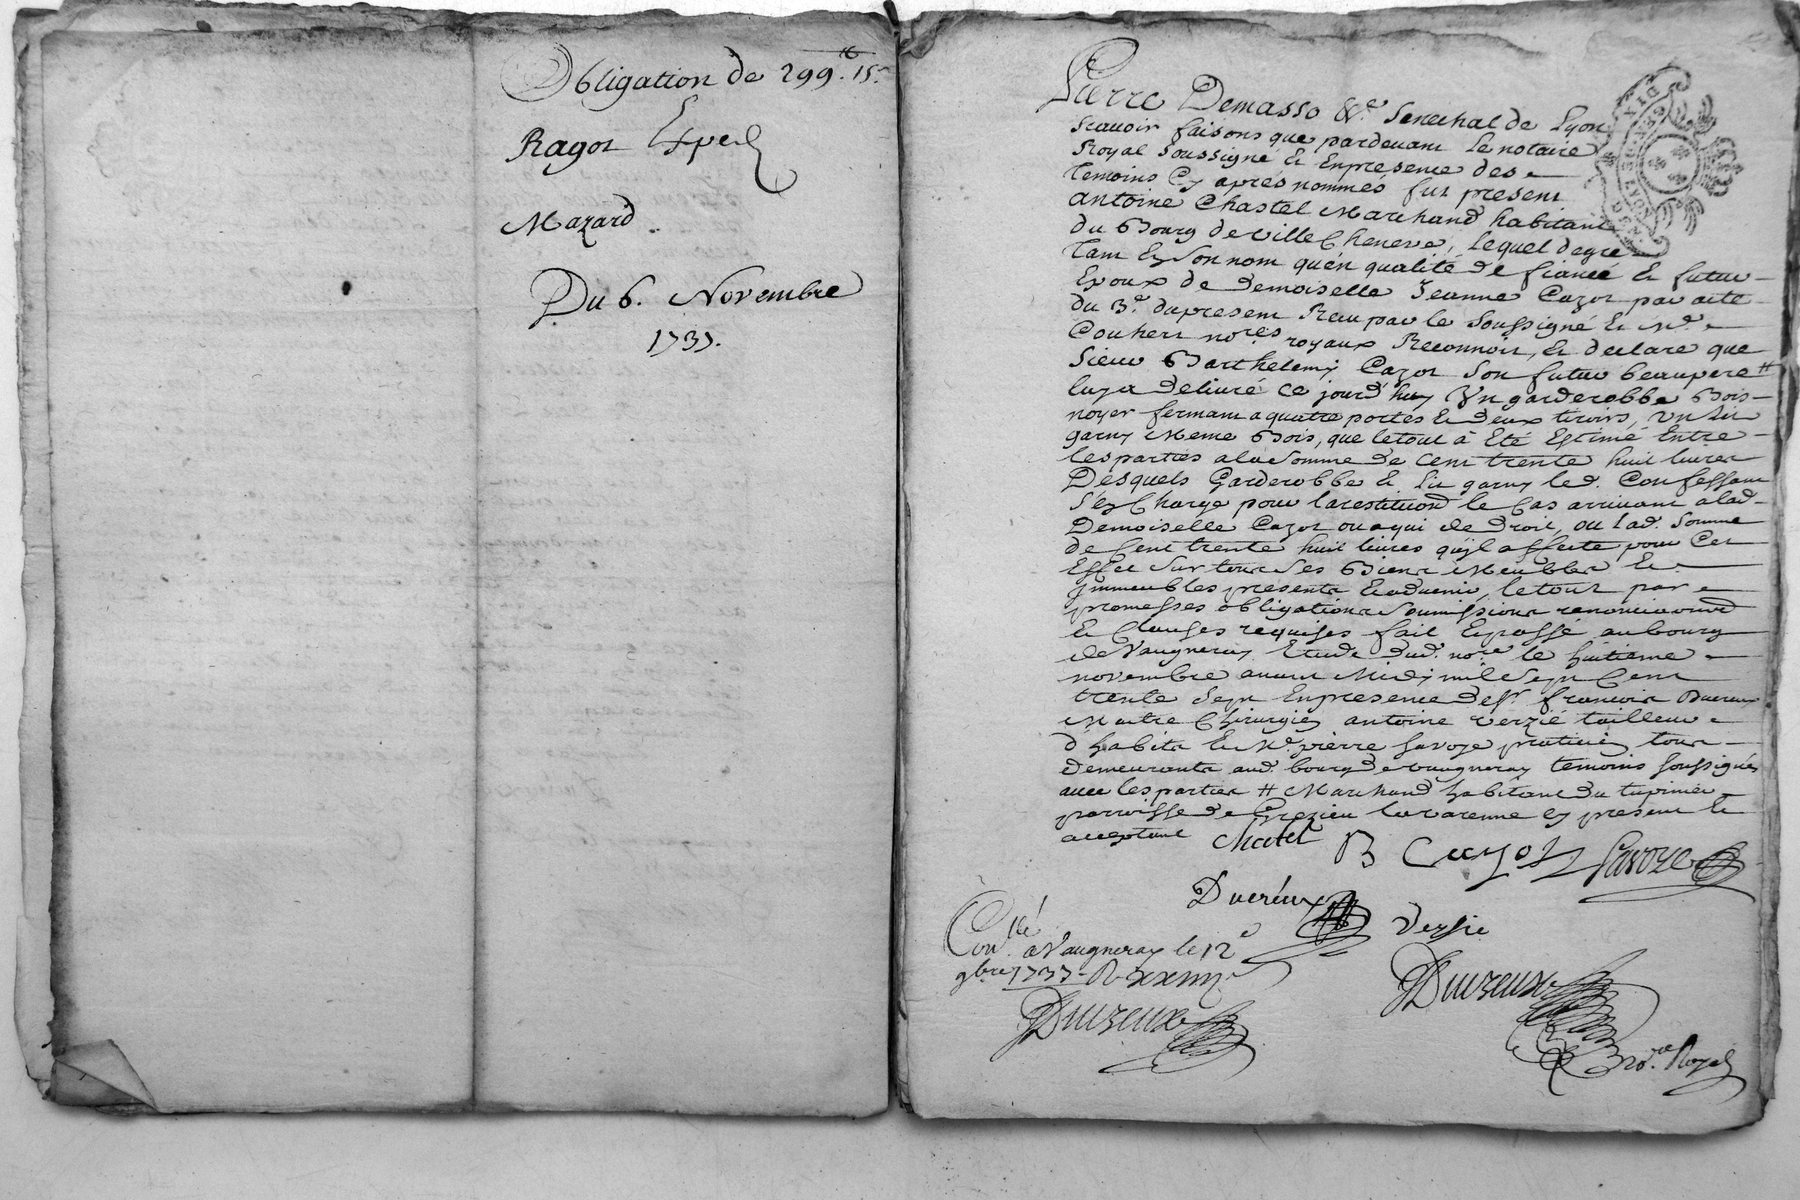 Obligation de 299.ᵗᵗ 15.ˢ
Ragot Exped
Mazard.
Du 6. Novembre
1737.
Pierre Demasso &ᵃ. Senechal de Lyon
Scavoir faisons que pardevant Le notaire
Royal Soussigné Et Enpresence des
Temoins Cy apres nommés fut present
antoine Chastel Marchand habitant
du Bourg de ville Cheneve, Lequel degré
Tant En Son nom quén qualité de fiancé Et futur
Epoux de Demoiselle Jeanne Cazot par acte
du 3.ᵉ dupresent Receu par le Soussigné Et Mᵉ.
Couhert noʳᵉˢ royaux Reconnoit, Et declare que
Sieur Barthelemy Cazot Son futur beaupere #
luy a delivré Ce jourd'huy Un garderobbe Bois
noyer fermant a quatre portes Et deux tiroirs, un Lit
garny Meme Bois, que letout à Eté Estimé Entre
les parties ala Somme de Cent trente huit livres
Desquels Garderobbe Et Lit garny led. Confessant
S'est Chargé pour larestituon̄ le Cas arrivant alad.
Demoiselle Cazot ou aqui de Droit, ou Lad. Somme
de Cent trente huit livres qu'il affecte pour Cet
Effet Sur tous Ses Biens Meubles Et
jmmeubles presents Et advenir, le tout par
promesses obligations Soumissions renonciaoñs
Et Clauses requises fait Et passé au bourg
de Vaugneray Etude dud. noʳᵉ le huitieme
novembre avant Midy mil Sept Cent
trente Sept Enpresence de Sʳ. francois Ducreux
Maitre Chirurgien antoine verzié tailleur
d'habits Et Mᵉ. pierre Savoye praticien tous
demeurants aud. bourg de vaugneray temoins Soussignés
avec les parties # Marchand habitant du tupinier
parroisse de Grezieu lavarenne cy present Et
acceptant Chatel B Cazot Savoye
Ducreux Versie
Conᵗˡᵉ́ a Vaugneray le 12ᵉ
9bre 1737. R.
Ducreux
Ducreux
noʳᵉ. Royal